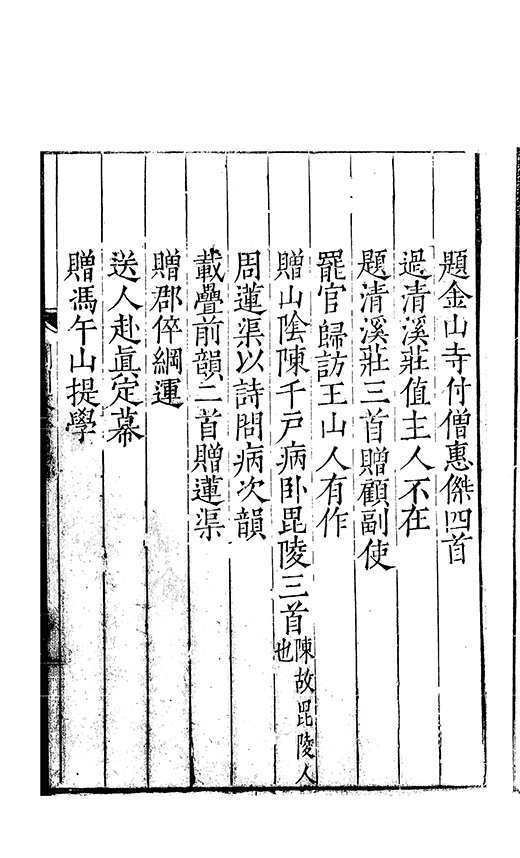 題金山寺付僧惠傑四首
過清溪莊值主人不在
題清溪莊三首贈顧副使
罷官歸訪王山人有作
贈山陰陳千戶病卧毘陵三首陳故毘陵人也
周蓮渠以詩問病次韻
載疊前韻二首贈蓮渠
贈郡倅綱運
送人赴眞定幕
贈馮午山提學